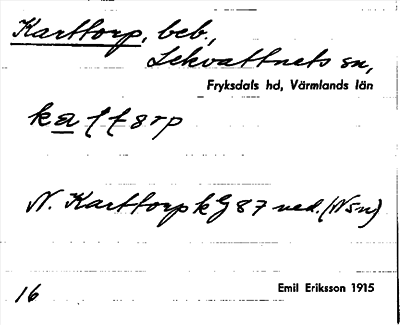 Karttorp, beb.,
Lekvattnets sn,
Fryksdals hd, Värmlands län
N. Karttorp k G 87 ned. (N sn)
16
Emil Eriksson 1915